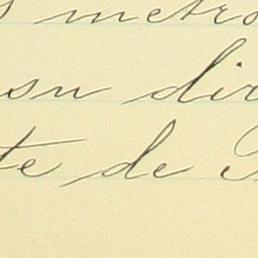 metro
su dir
te de